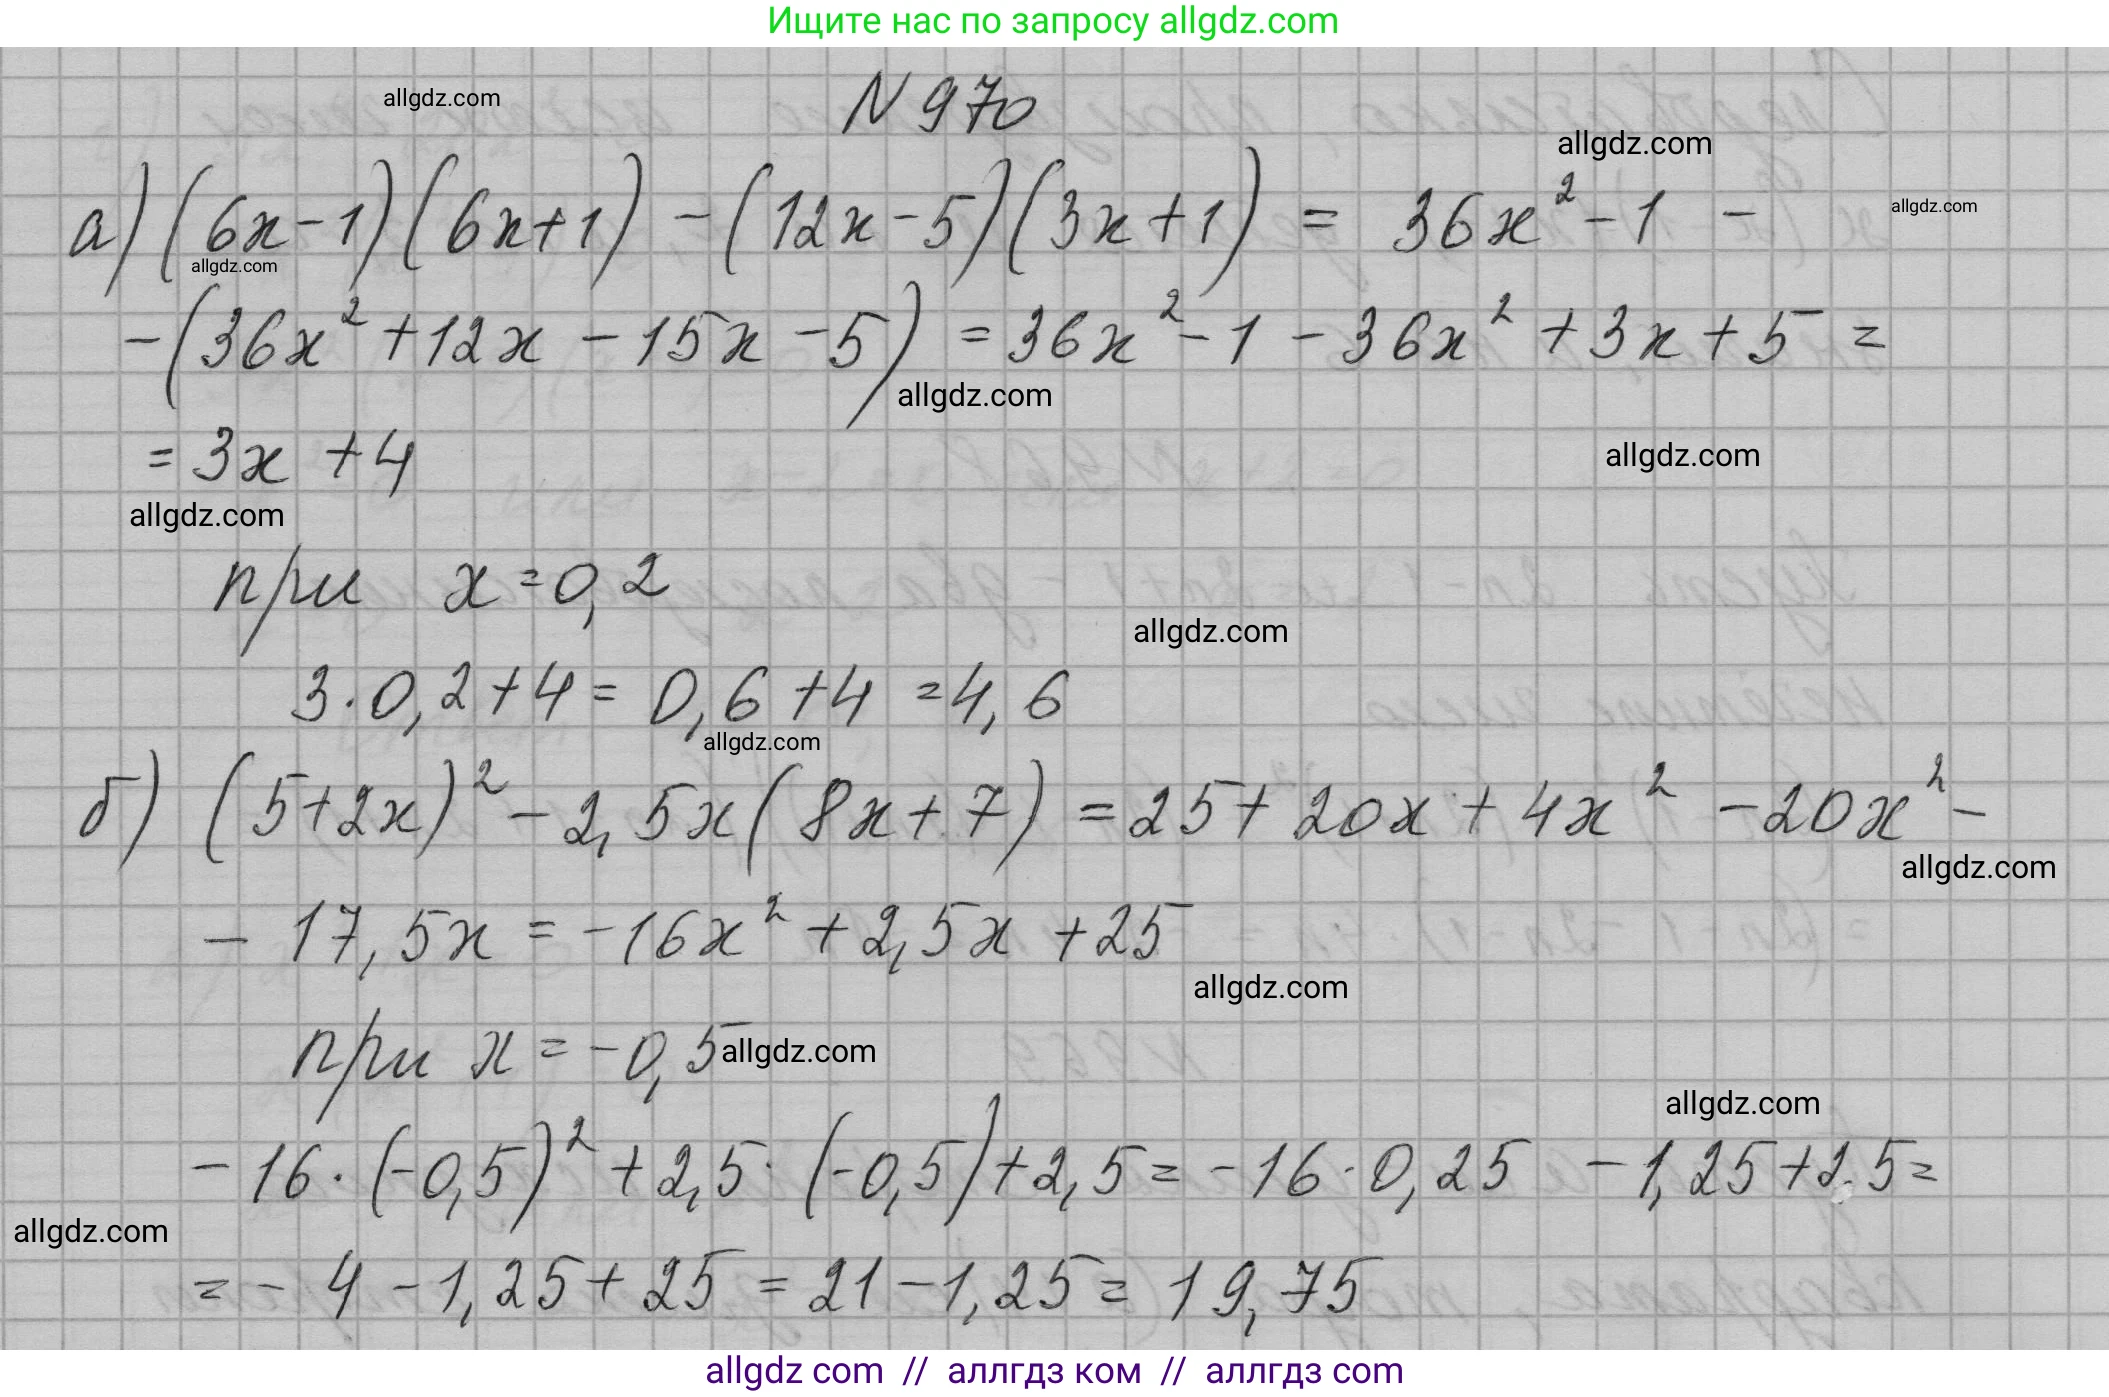 Ищите нас по запросу allgdz.com
allgdz.com
N 970
allgdz.com
а) (6x-1)(6x+1) - (12x-5)(3x+1) = 36x² - 1 -
allgdz.com
allgdz.com
-(36x² + 12x - 15x - 5) = 36x² - 1 - 36x² + 3x + 5 =
allgdz.com
= 3x + 4
allgdz.com
allgdz.com
при x = 0,2
allgdz.com
3·0,2 + 4 = 0,6 + 4 = 4,6
allgdz.com
б) (5+2x)² - 2,5x(8x+7) = 25 + 20x + 4x² - 20x² -
allgdz.com
- 17,5x = -16x² + 2,5x + 25
allgdz.com
при x = -0,5
allgdz.com
allgdz.com
-16·(-0,5)² + 2,5·(-0,5) + 2,5 = -16·0,25 - 1,25 + 2.5 =
allgdz.com
= - 4 - 1,25 + 25 = 21 - 1,25 = 19,75
allgdz com // аллгдз ком // аллгдз com